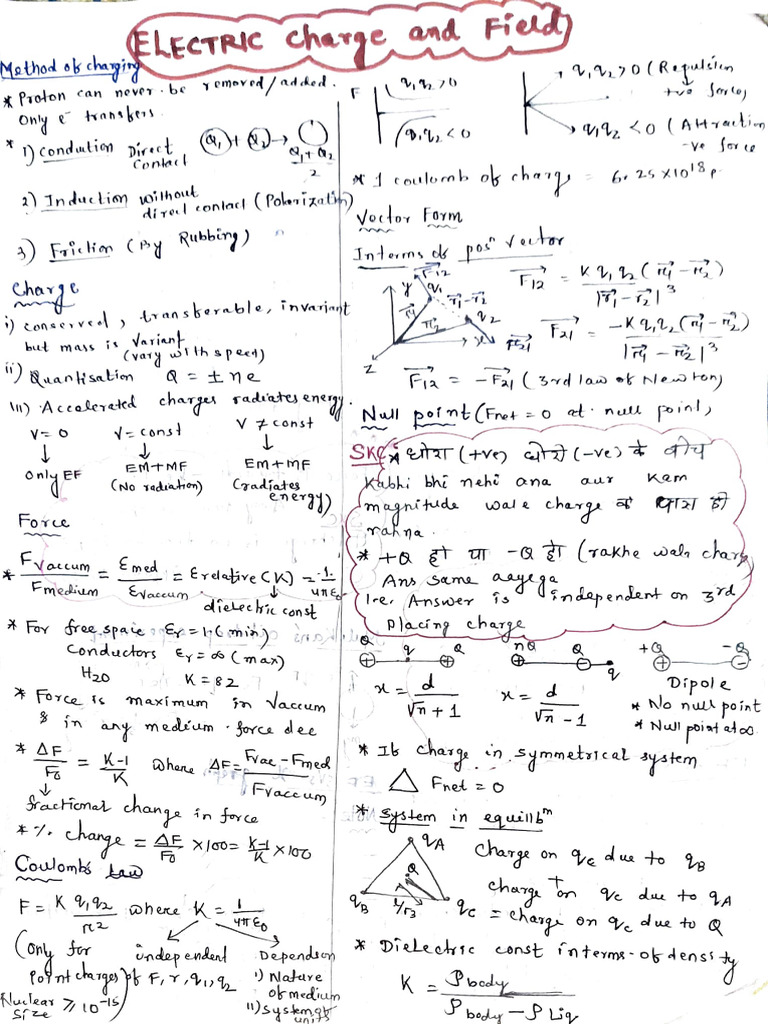 ELECTRIC Charge and Field
Method of charging
* Proton can never be removed/added.
Only e⁻ transfers.
* 1) Conduction Direct Contact (Q₁) + (Q₂) → ◯ Q₁+Q₂/2
2) Induction without direct contact (Polarization)
3) Friction (By Rubbing)
Charge
i) conserved, transferable, invariant
but mass is variant
(vary with speed)
ii) Quantisation Q = ± ne
III) Accelerated charges radiates energy.
V=0 V=const V≠const
↓ ↓ ↓
Only EF EM+MF EM+MF
(No radiation) (radiates energy)
Force
* Fvaccum/Fmedium = Emed/Evaccum = Erelative (K) = 1/4πε₀
dielectric const
* For free space Er = 1 (min)
Conductors Er = ∞ (max)
H₂O K = 82
* Force is maximum in vaccum
& in any medium force dec
* ΔF/F₀ = K-1/K where ΔF = Fvac - Fmed/Fvaccum
fractional change in force
* % change = ΔF/F₀ ×100 = K-1/K ×100
Coulomb's law
F = K q₁q₂/r² where K = 1/4πε₀
(Only for point charges) independent of F, r, q₁, q₂
Nuclear size ≥ 10⁻¹⁵
Depends on
i) Nature of medium
ii) System of units
F q₁q₂ > 0
q₁q₂ < 0
q₁q₂ > 0 (Repulsion +ve force)
q₁q₂ < 0 (Attraction -ve force
* 1 coulomb of charge = 6.25 × 10¹⁸
Vector Form
Interms of posⁿ vector
F₁₂ y q₁ r₁ r₁-r₂ q₂ r₂ x F₂₁ z
F₁₂ = K q₁q₂ (r₁ - r₂)/|r₁ - r₂|³
F₂₁ = -K q₁q₂ (r₁ - r₂)/|r₁ - r₂|³
F₁₂ = -F₂₁ (3rd law of Newton)
Null point (Fnet = 0 at null point)
SKC * (+ve) (-ve) के बीच
Kabhi bhi nehi ana aur Kam
magnitude wale charge के पास ही
rahna.
* +Q हो या -Q हो (rakhe wale charge)
Ans same aayega
i.e. Answer is independent on 3rd
placing charge
Q q Q nQ Q q +Q -Q
x = d/√n + 1 x = d/√n - 1 Dipole
* No null point
* Null point at ∞
* If charge in symmetrical system
△ Fnet = 0
* System in equilibᵐ
qA Q qB qC
Charge on qc due to qB
+
charge on qc due to qA
= charge on qc due to Q
* Dielectric const interms of density
K = ρbody/ρbody - ρLiq